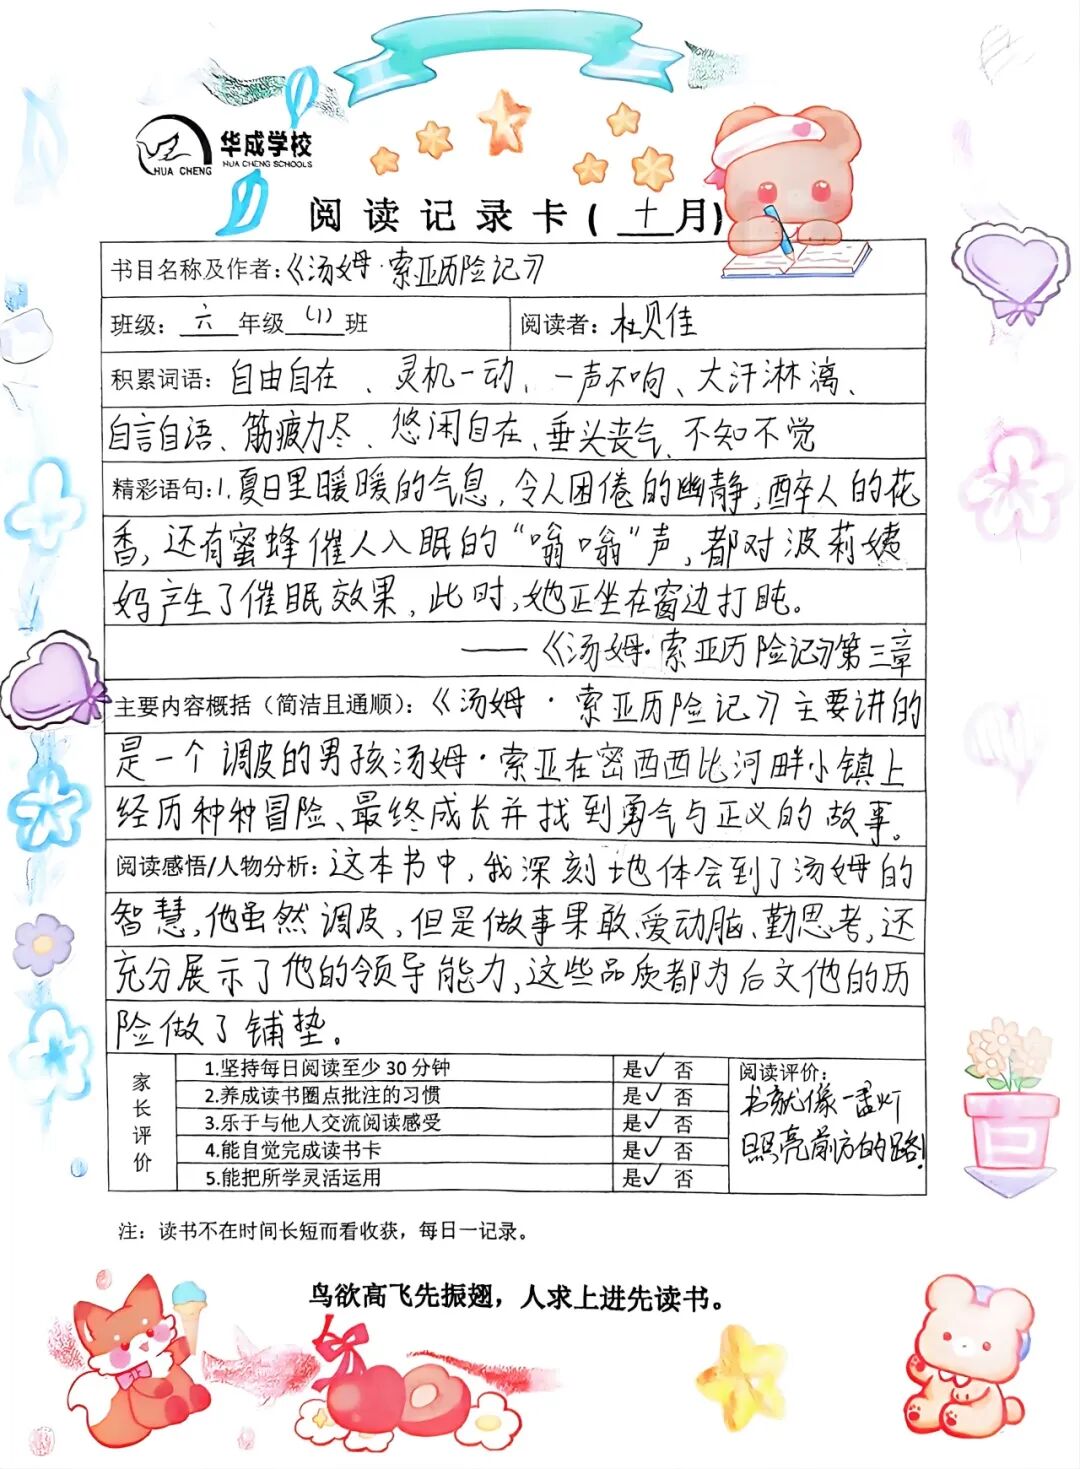 华成学校
HUA CHENG SCHOOLS
HUA CHENG
阅读记录卡(十月)
书目名称及作者:《汤姆·索亚历险记》
班级: 六 年级 (1) 班 阅读者: 杜贝佳
积累词语: 自由自在、灵机一动、一声不响、大汗淋漓、
自言自语、筋疲力尽、悠闲自在、垂头丧气、不知不觉
精彩语句:1.夏日里暖暖的气息,令人困倦的幽静,醉人的花
香,还有蜜蜂催人入眠的“嗡嗡”声,都对波莉姨
妈产生了催眠效果,此时,她正坐在窗边打盹。
——《汤姆·索亚历险记》第三章
主要内容概括(简洁且通顺):《汤姆·索亚历险记》主要讲的
是一个调皮的男孩汤姆·索亚在密西西比河畔小镇上
经历种种冒险、最终成长并找到勇气与正义的故事。
阅读感悟/人物分析: 这本书中,我深刻地体会到了汤姆的
智慧,他虽然调皮,但是做事果敢、爱动脑、勤思考,还
充分展示了他的领导能力,这些品质都为后文他的历
险做了铺垫。
家长评价
1.坚持每日阅读至少 30 分钟 是✓ 否
2.养成读书圈点批注的习惯 是✓ 否
3.乐于与他人交流阅读感受 是✓ 否
4.能自觉完成读书卡 是✓ 否
5.能把所学灵活运用 是✓ 否
阅读评价:
书就像一盏灯
照亮前方的路!
注: 读书不在时间长短而看收获, 每日一记录。
鸟欲高飞先振翅, 人求上进先读书。